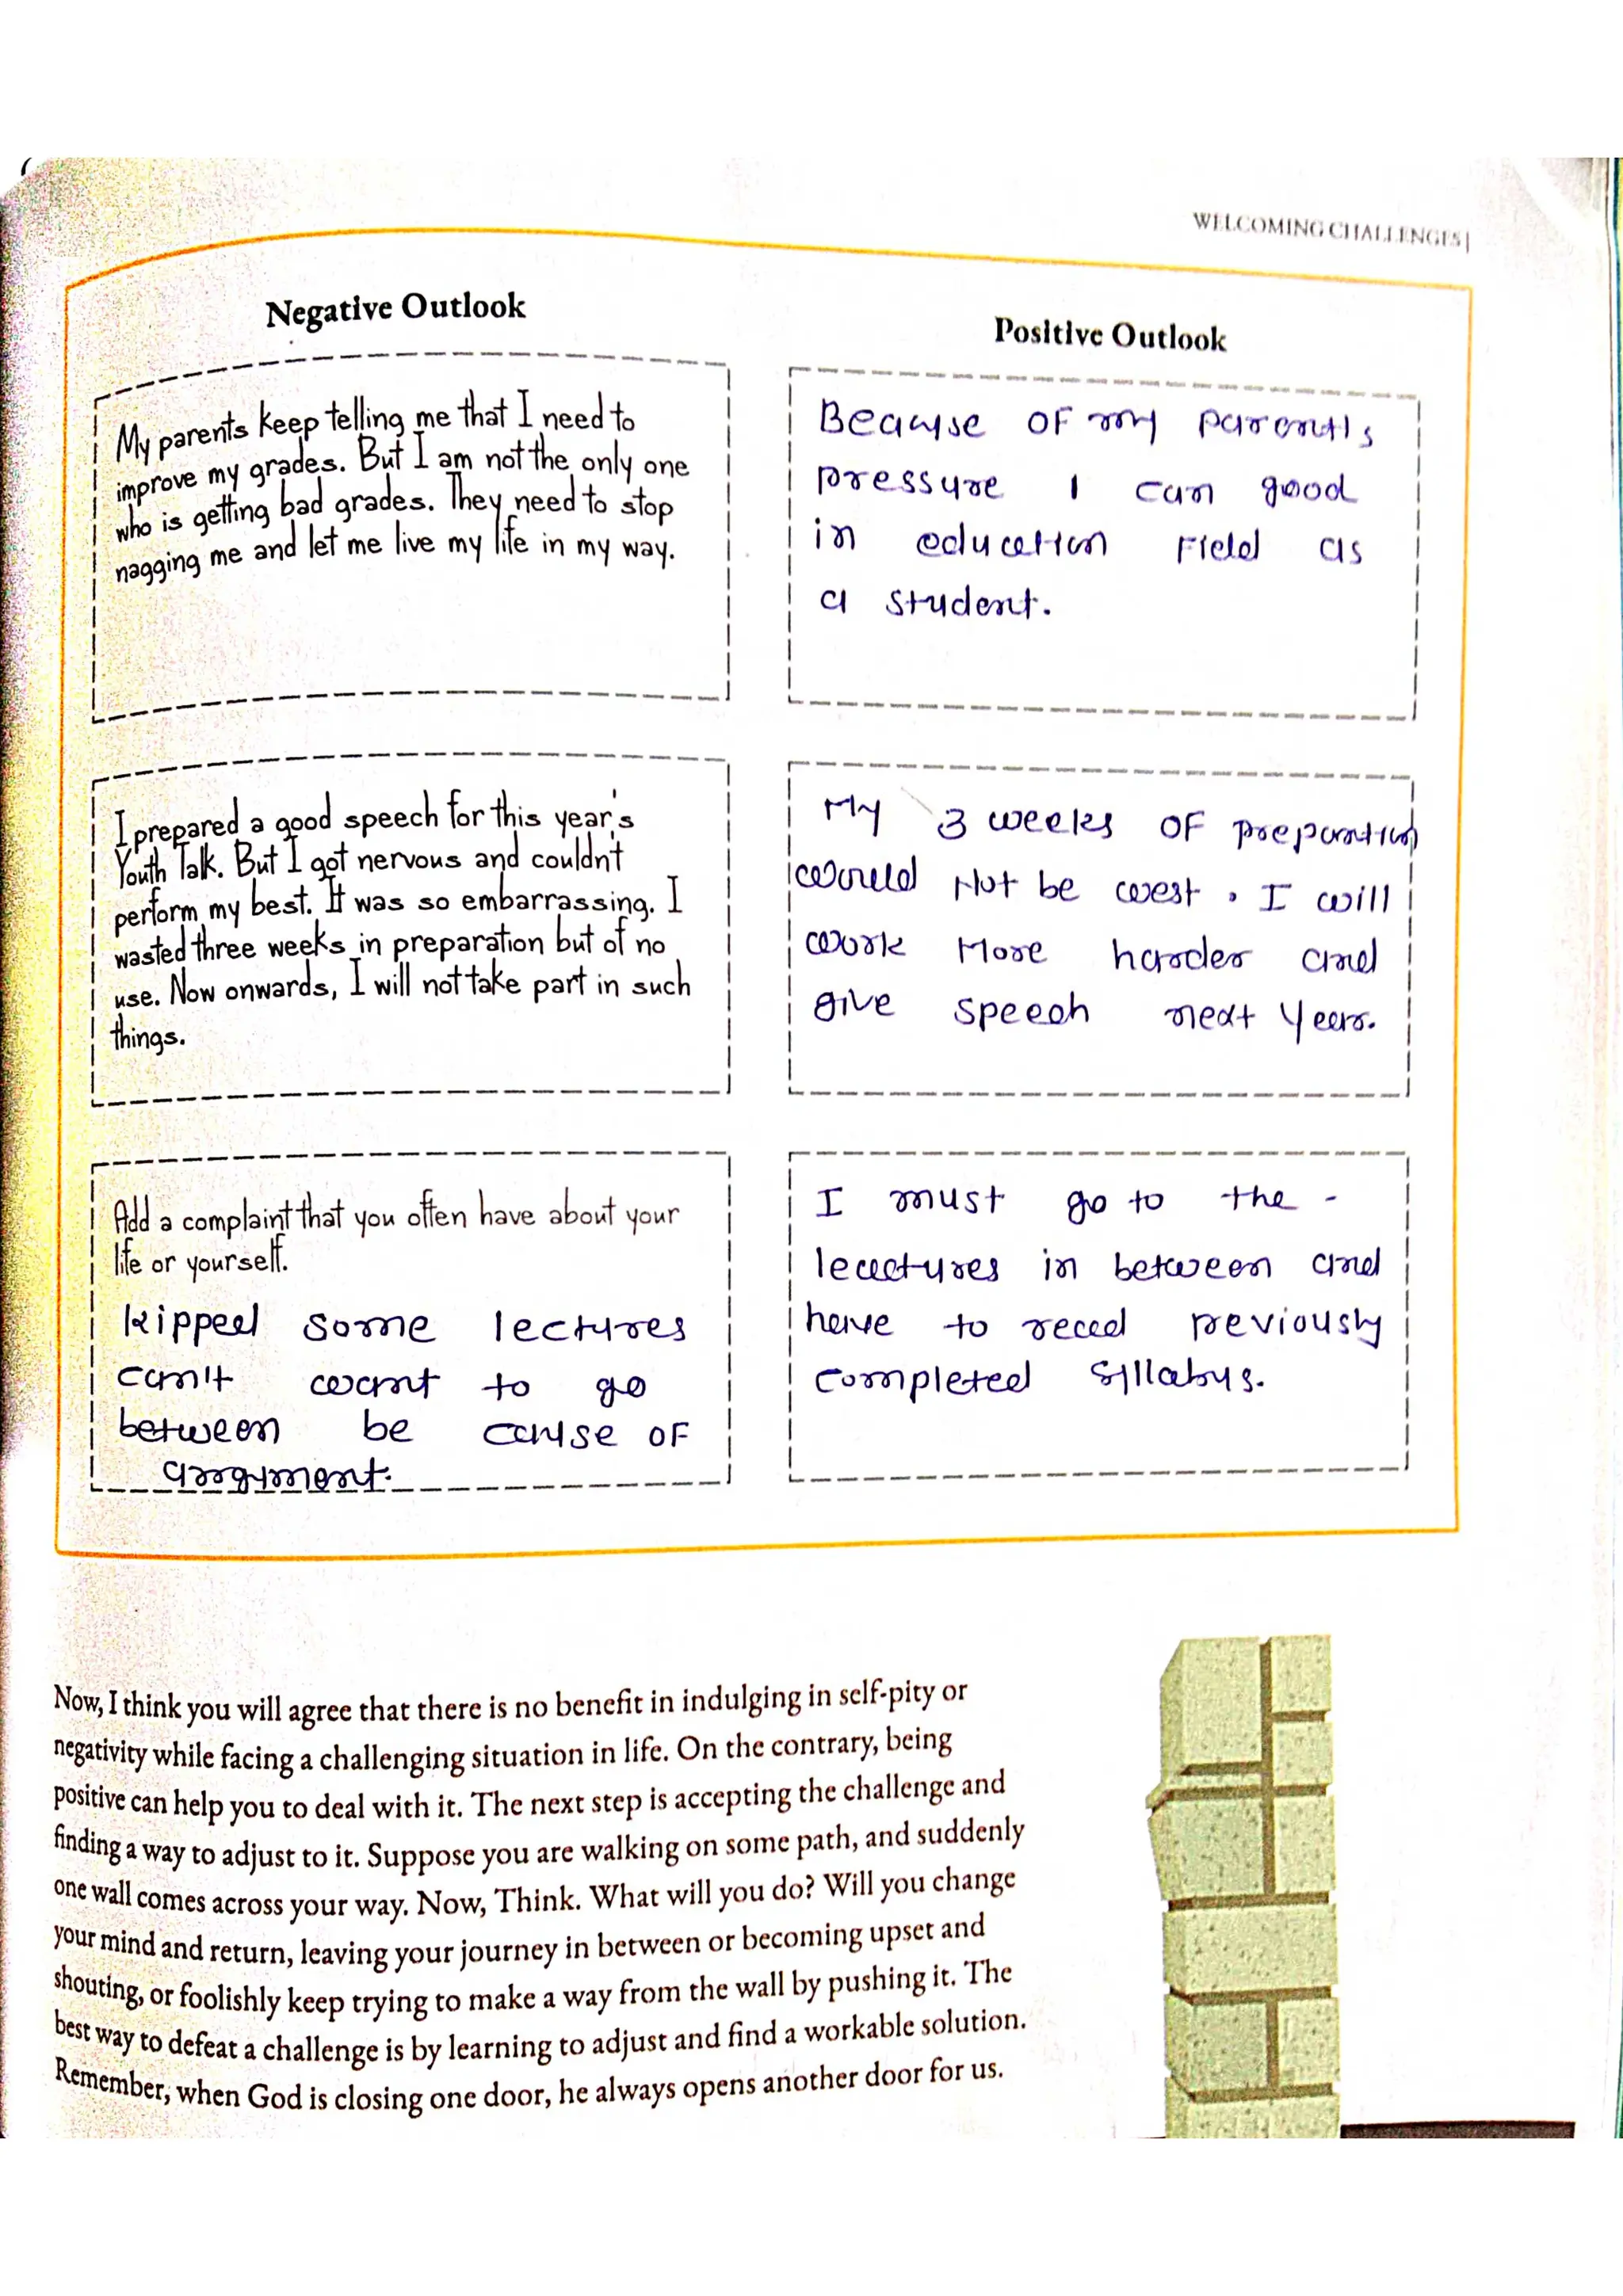 WELCOMING CHALLENGES|
Negative Outlook
My parents keep telling me that I need to
improve my grades. But I am not the only one
who is getting bad grades. They need to stop
nagging me and let me live my life in my way.
Positive Outlook
Beause of my parents
pressure I can good
in education Field as
a student.
I prepared a good speech for this year's
Youth Talk. But I got nervous and couldn't
perform my best. It was so embarrassing. I
wasted three weeks in preparation but of no
use. Now onwards, I will not take part in such
things.
My 3 weeks of preparation
would Not be west. I will
work More harder and
give speech next year.
Add a complaint that you often have about your
life or yourself.
kipped some lectures
can't want to go
between be cause of
argument.
I must go to the -
lectures in between and
have to read previously
completed syllabus.
Now, I think you will agree that there is no benefit in indulging in self-pity or
negativity while facing a challenging situation in life. On the contrary, being
positive can help you to deal with it. The next step is accepting the challenge and
finding a way to adjust to it. Suppose you are walking on some path, and suddenly
one wall comes across your way. Now, Think. What will you do? Will you change
your mind and return, leaving your journey in between or becoming upset and
shouting, or foolishly keep trying to make a way from the wall by pushing it. The
best way to defeat a challenge is by learning to adjust and find a workable solution.
Remember, when God is closing one door, he always opens another door for us.